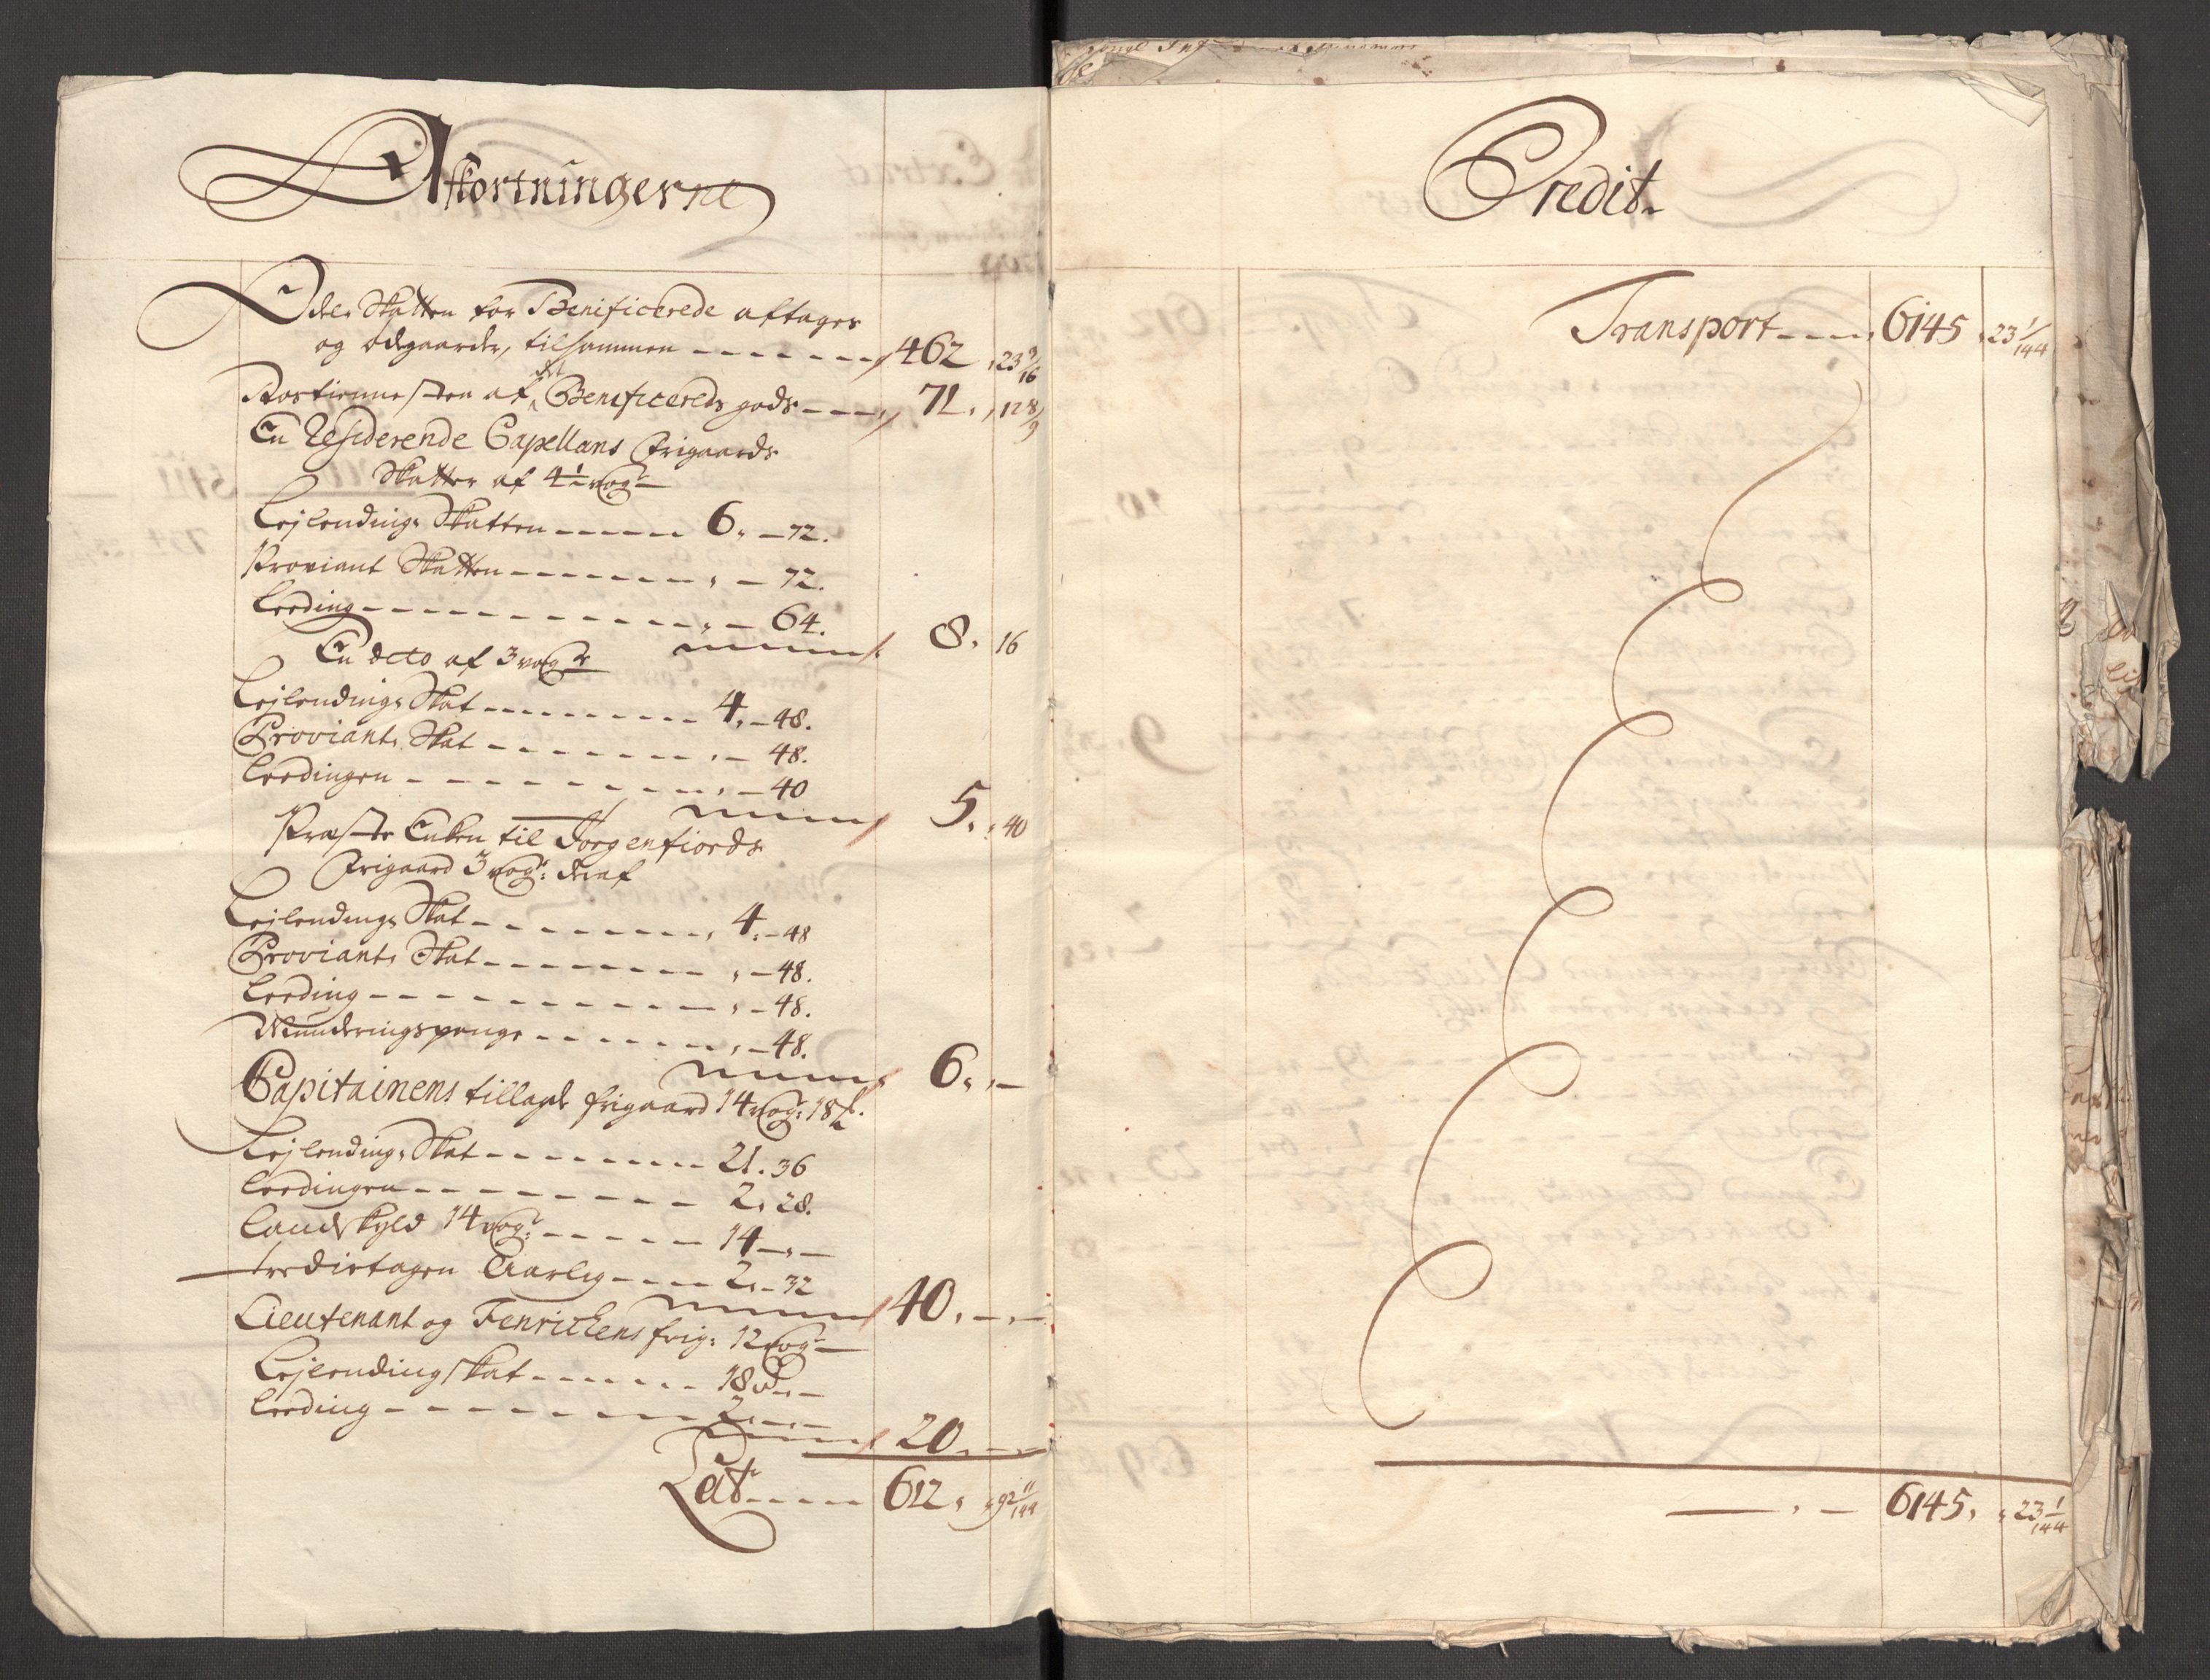 Afkortningerne
Odels Skatten for Benificerede aftages
og ödegaarder, tilsammen - - - - - - 462 " 23 9/16
Rostienne sten af det Benificereds gods - - - - 71 " 12 8/9
En Residerende Capellans Frigaards
Skatter af 4½ wog
Lejlendings Skatten - - - - - 6 " - 72.
Proviant Skatten - - - - - - - " - 72.
Leeding - - - - - - - - - - - - " - 64.
8 " 16
En dcto af 3 wog
Lejlendings Skat - - - - - - - - - 4 " - 48.
Proviant Skat - - - - - - - - - " - 48.
Leedingen - - - - - - - - - - " - 40
5 " " 40
Præste Enken til Jorgenfiords
Frigaard 3 wog: deraf
Lejlendings Skat - - - - - - - - - 4 " - 48
Proviant Skat - - - - - - - - " - 48.
Leeding - - - - - - - - - - - - " - 48.
Munderingspenge - - - - - - - " - 48.
6 " " -
Capitainens tillagde frigaard 14 wog: 18
Lejlendings Skat - - - - - - - - - 21 . 36
Leedingen - - - - - - - - - - 2 " 28.
Landskyld 14 wog: - - - - - - 14 - " -
tredietagen Aarlig - - - - 2 " - 32
40 " - " -
Lieutenant og Fenrichens frig: 12 wog
Lejlending skat - - - - - - 18 " -
Leeding - - - - - - - - - 2 " - " -
20 " - " -
Lat - - - - - 612 " " 92 11/144
Credit.
Transport - - - - 6145 " 23 1/144
- " - 6145 " " 23 1/144